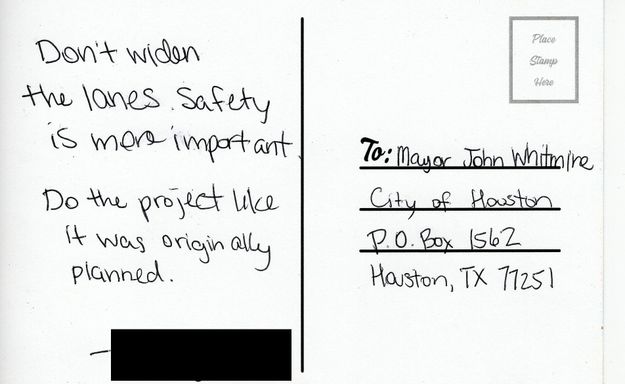 Don't widen
the lanes. Safety
is more important.
Do the project like
it was originally
planned.
—
Place
Stamp
Here
To: Mayor John Whitmire
City of Houston
P.O. Box 1562
Houston, TX 77251